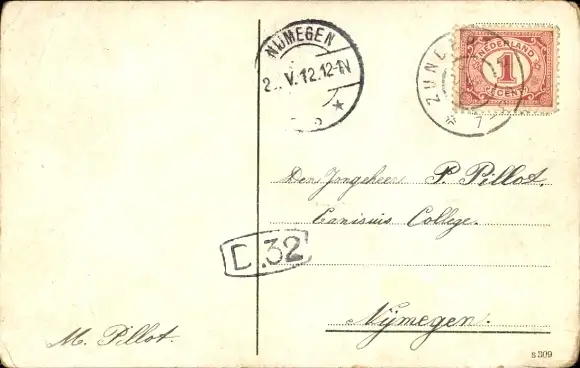 NIJMEGEN
2 .V.12.12-1N
NEDERLAND
1
CENT
ZUN
7
Den Jongeheer P. Pillot.
Canisius College.
D.32
Nijmegen.
M. Pillot.
S 309